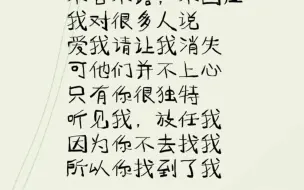 我对很多人说
爱我请让我消失
可他们并不上心
只有你很独特
听见我,放任我
因为你不去找我
所以你找到了我